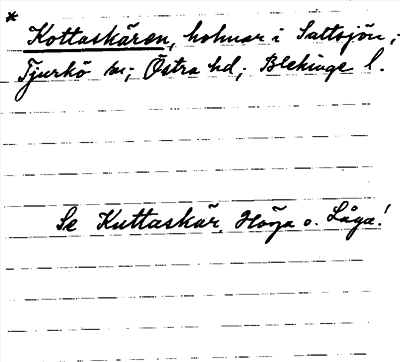 *
Kottaskären, holmar i Saltsjön,
Tjurkö sn; Östra hd; Blekinge l.
Se Kuttaskär, Höga o. Låga!